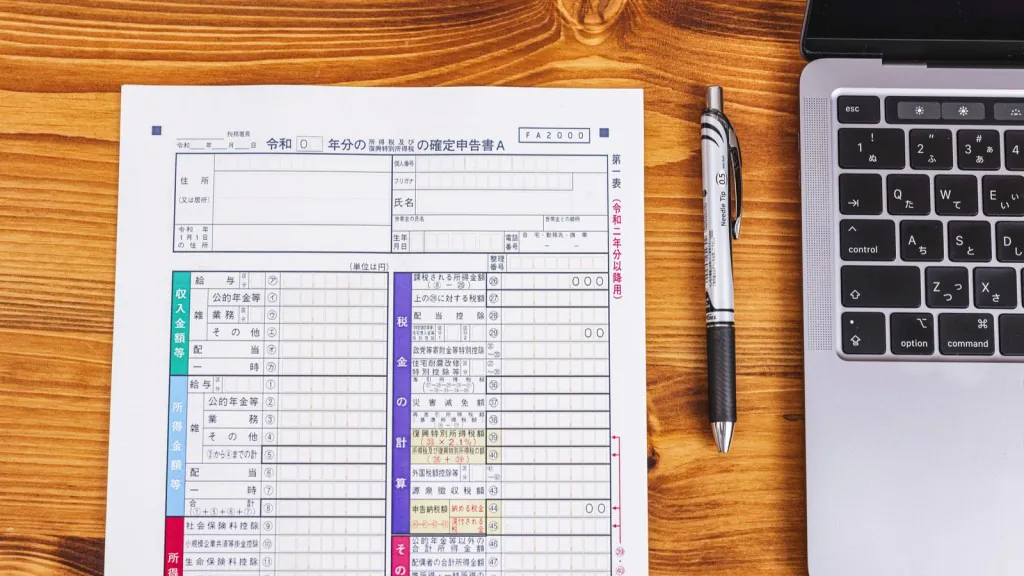 税務署長
令和 年 月 日
令和 0 年分の 所得税及び復興特別所得税 の確定申告書A
FA2000
第一表(令和二年分以降用)
住所
(又は居所)
個人番号
フリガナ
氏名
令和 年
1月1日
の住所
世帯主の氏名
世帯主との続柄
生年
月日
電話
番号
自宅・勤務先・携帯
整理
番号
(単位は円)
収入金額等
給与 区分 ㋐
雑
公的年金等 ㋑
業務 区分 ㋒
その他 ㋓
配当 ㋔
一時 ㋕
所得金額等
給与 区分 ①
雑
公的年金等 ②
業務 ③
その他 ④
②から④までの計 ⑤
配当 ⑥
一時 ⑦
合計
(①+⑤+⑥+⑦) ⑧
所得
社会保険料控除 ⑨
小規模企業共済等掛金控除 ⑩
生命保険料控除 ⑪
税金の計算
課税される所得金額
(⑧-㉕) ㉖ 000
上の㉖に対する税額 ㉗
配当控除 ㉘
区分 区分 ㉙ 00
政党等寄附金等特別控除
住宅耐震改修
特別控除等 区分
差引所得税額 ㊱
災害減免額 ㊲
再差引所得税額
(基準所得税額) ㊳
復興特別所得税額
(㊳×2.1%) ㊴
所得税及び復興特別所得税の額
(㊳+㊴) ㊵
外国税額控除等 区分
源泉徴収税額 ㊸
申告納税額 納める税金 ㊹ 00
還付される税金 ㊺
その
公的年金等以外の
合計所得金額 ㊻
配偶者の合計所得金額 ㊼
Needle Tip 0.5
esc
! 1 ぬ
" 2 ふ
# 3 ぁ あ
Q た
W て
E ぃ い
control
A ち
S と
D し
Z っ つ
X さ
option
command